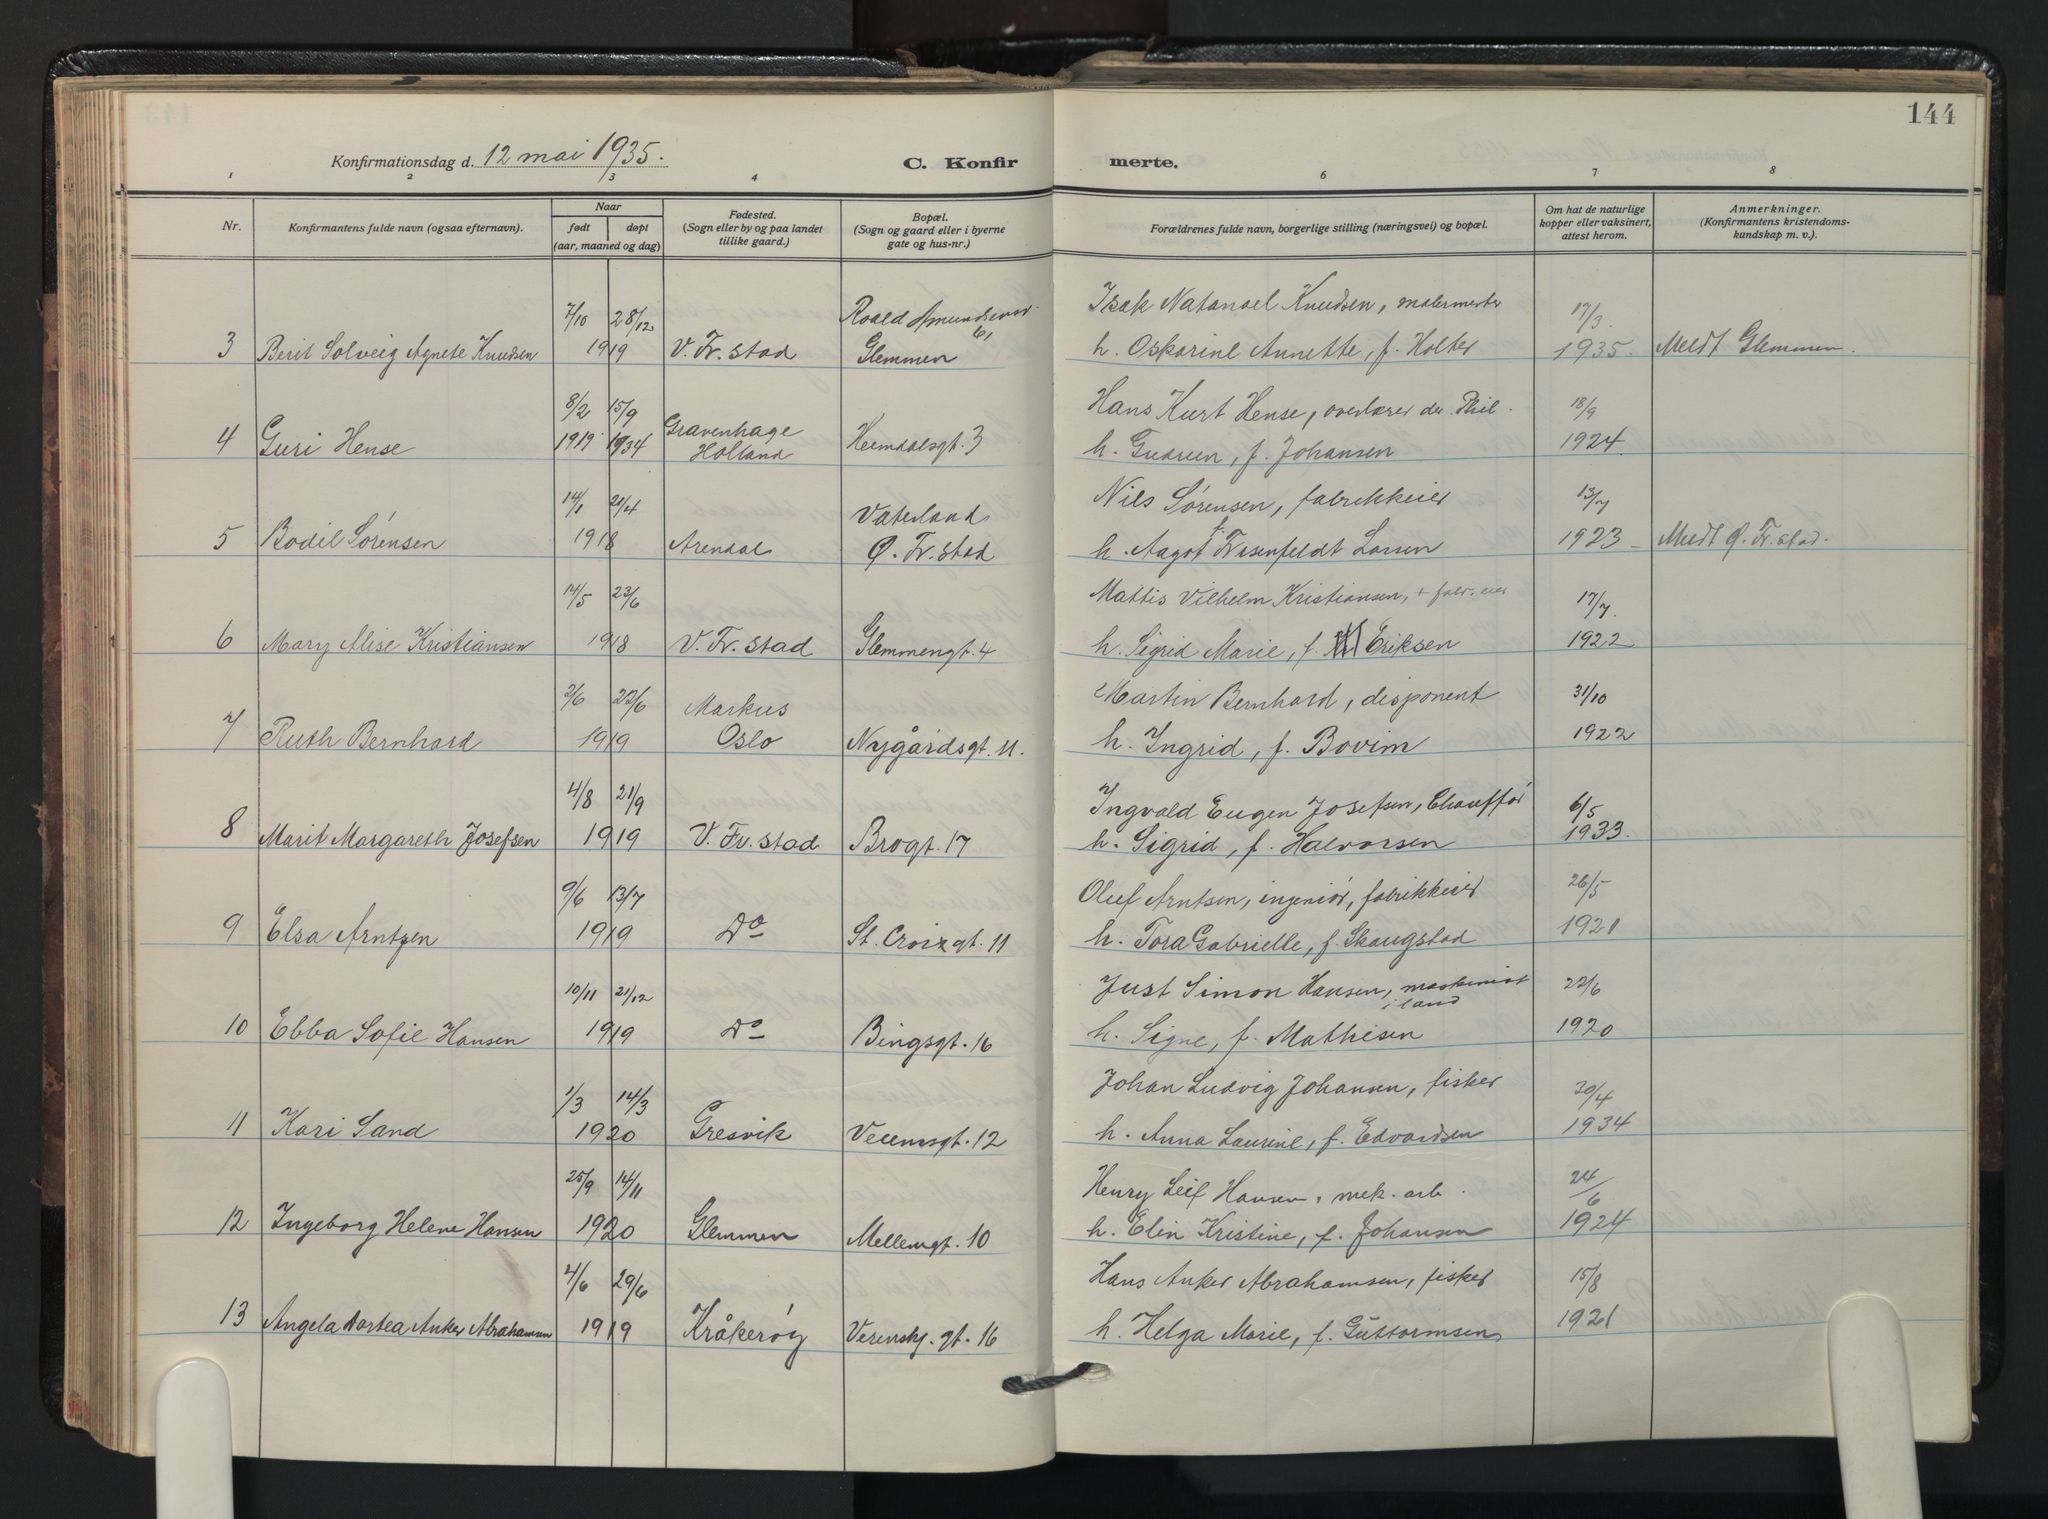 144
Konfirmationsdag d. 12 mai 1935.
C. Konfir merte.
1 2 3 4 6 7 8
Nr.
Konfirmantens fulde navn (ogsaa efternavn).
Naar
født døpt
(aar, maaned og dag)
Fødested.
(Sogn eller by og paa landet
tillike gaard.)
Bopæl.
(Sogn og gaard eller i byerne
gate og hus-nr.)
Forældrenes fulde navn, borgerlige stilling (næringsvei) og bopæl.
Om hat de naturlige
kopper eller vaksinert,
attest herom.
Anmerkninger.
(Konfirmantens kristendoms-
kundskap m. v.).
7/10 28/12 Roald Amundsensv. Isak Natanael Knudsen, malermester 17/3.
3 Berit Solveig Agnete Knudsen 1919 V. Fr. stad Glemmen h. Oskarine Annette, f. Holter 1935. Meldt Glemmen.
8/2 15/9 Gravenhage Hans Kurt Hense, overlærer dr. Phil. 18/9
4 Guri Hense 1919 1934 Holland Heimdalsgt. 3 h. Gudrun, f. Johansen 1924
14/1 21/4 Vaterland Nils Sørensen, fabrikkeier 13/7
5 Bodil Sørensen 1918 Arendal Ø. Fr. stad h. Aagot f. Frisenfeldt Larsen 1923 Meldt Ø. Fr. stad.
14/5 23/6 Mattis Vilhelm Kristiansen, + fabr. eier 17/7.
6 Mary Alise Kristiansen 1918 V. Fr. stad Glemmengt. 4 h. Sigrid Marie, f. Eriksen 1922
2/6 22/6 Markus Martin Bernhard, disponent 31/10
7 Ruth Bernhard 1919 Oslo Nygårdsgt. 11. h. Ingrid, f. Bovim 1922
4/8 21/9 Ingvald Eugen Josefsen, Chauffør 6/5
8 Marit Margareth Josefsen 1919 V. Fr. stad Brogt. 17 h. Sigrid, f. Halvorsen 1933.
9/6 13/7 Oluf Arntsen, ingeniør, fabrikkeier 26/5
9 Elsa Arntzen 1919 Do St. Croixgt. 11 h. Tora Gabrielle, f. Skaugstad 1921
10/11 21/12 Just Simon Hansen, maskinist i land 22/6
10 Ebba Sofie Hansen 1919 Do Bingsgt. 16 h. Signe, f. Mathisen 1920
1/3 14/3 Johan Ludvig Johansen, fisker 30/4
11 Kari Sand 1920 Gresvik Veumsgt. 12 h. Anna Laurine, f. Edvardsen 1934
25/9 14/11 Henry Leif Hansen, mek. arb. 24/6
12 Ingeborg Helene Hansen 1920 Glemmen Mellemgt. 10 h. Elin Kristine, f. Johansen 1924
4/6 29/6 Hans Anker Abrahamsen, fisker 15/8
13 Angela Dortea Anker Abrahamsen 1919 Kråkerøy Verenskj. gt. 16 h. Helga Marie, f. Guttormsen 1921